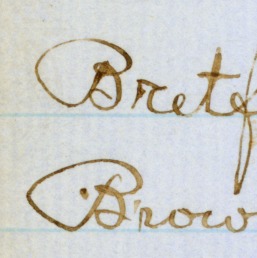 Bretf
Brow